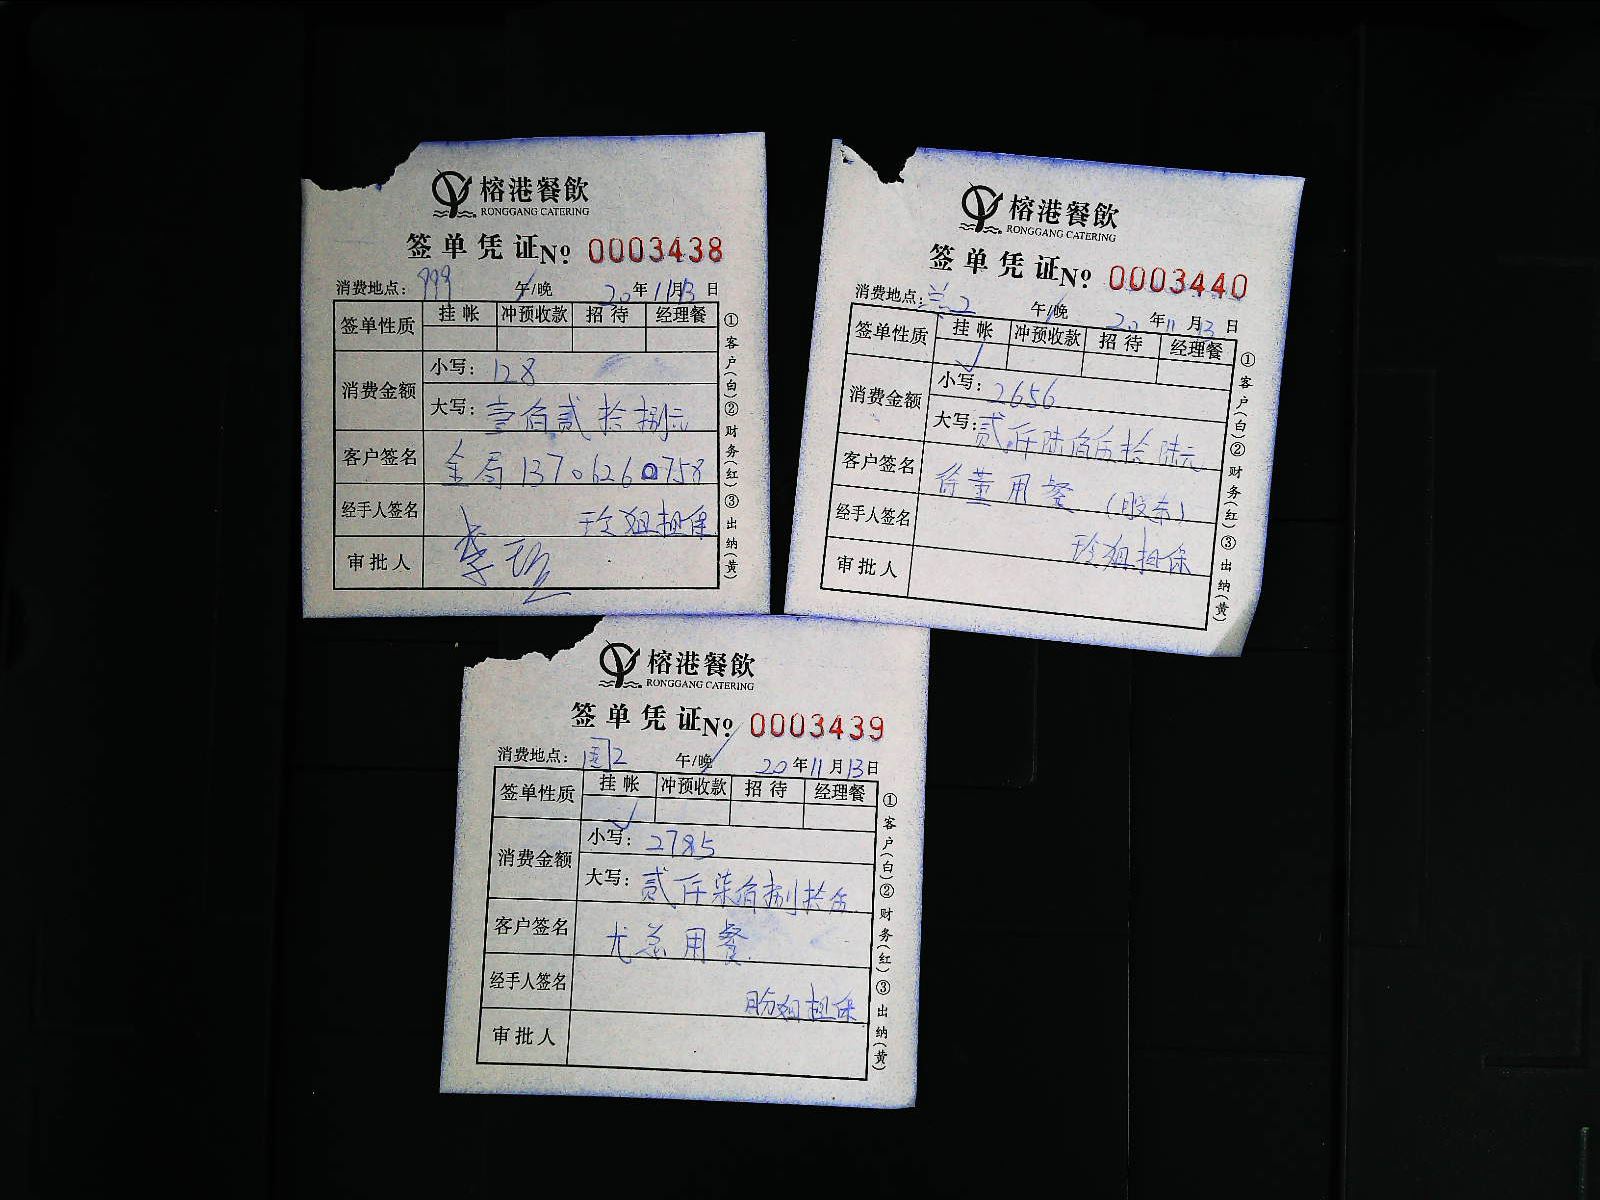 榕港餐飲
RONGGANG CATERING
签单凭证 № 0003438
消费地点: 999 午/晚 20年11月13日
签单性质 挂帐 冲预收款 招待 经理餐
消费金额 小写: 128
大写: 壹佰贰拾捌元
客户签名 金局 13706260758
经手人签名 玲姐担保
审批人 李
①客户(白)②财务(红)③出纳(黄)
榕港餐飲
RONGGANG CATERING
签单凭证 № 0003440
消费地点: 兰2 午/晚 20年11月13日
签单性质 挂帐 冲预收款 招待 经理餐
消费金额 小写: 2656
大写: 贰仟陆佰伍拾陆元
客户签名 徐董用餐 (股东)
经手人签名 玲姐担保
审批人
①客户(白)②财务(红)③出纳(黄)
榕港餐飲
RONGGANG CATERING
签单凭证 № 0003439
消费地点: 国2 午/晚 20年11月13日
签单性质 挂帐 冲预收款 招待 经理餐
消费金额 小写: 2785
大写: 贰仟柒佰捌拾伍
客户签名 尤总用餐
经手人签名 盼姐担保
审批人
①客户(白)②财务(红)③出纳(黄)